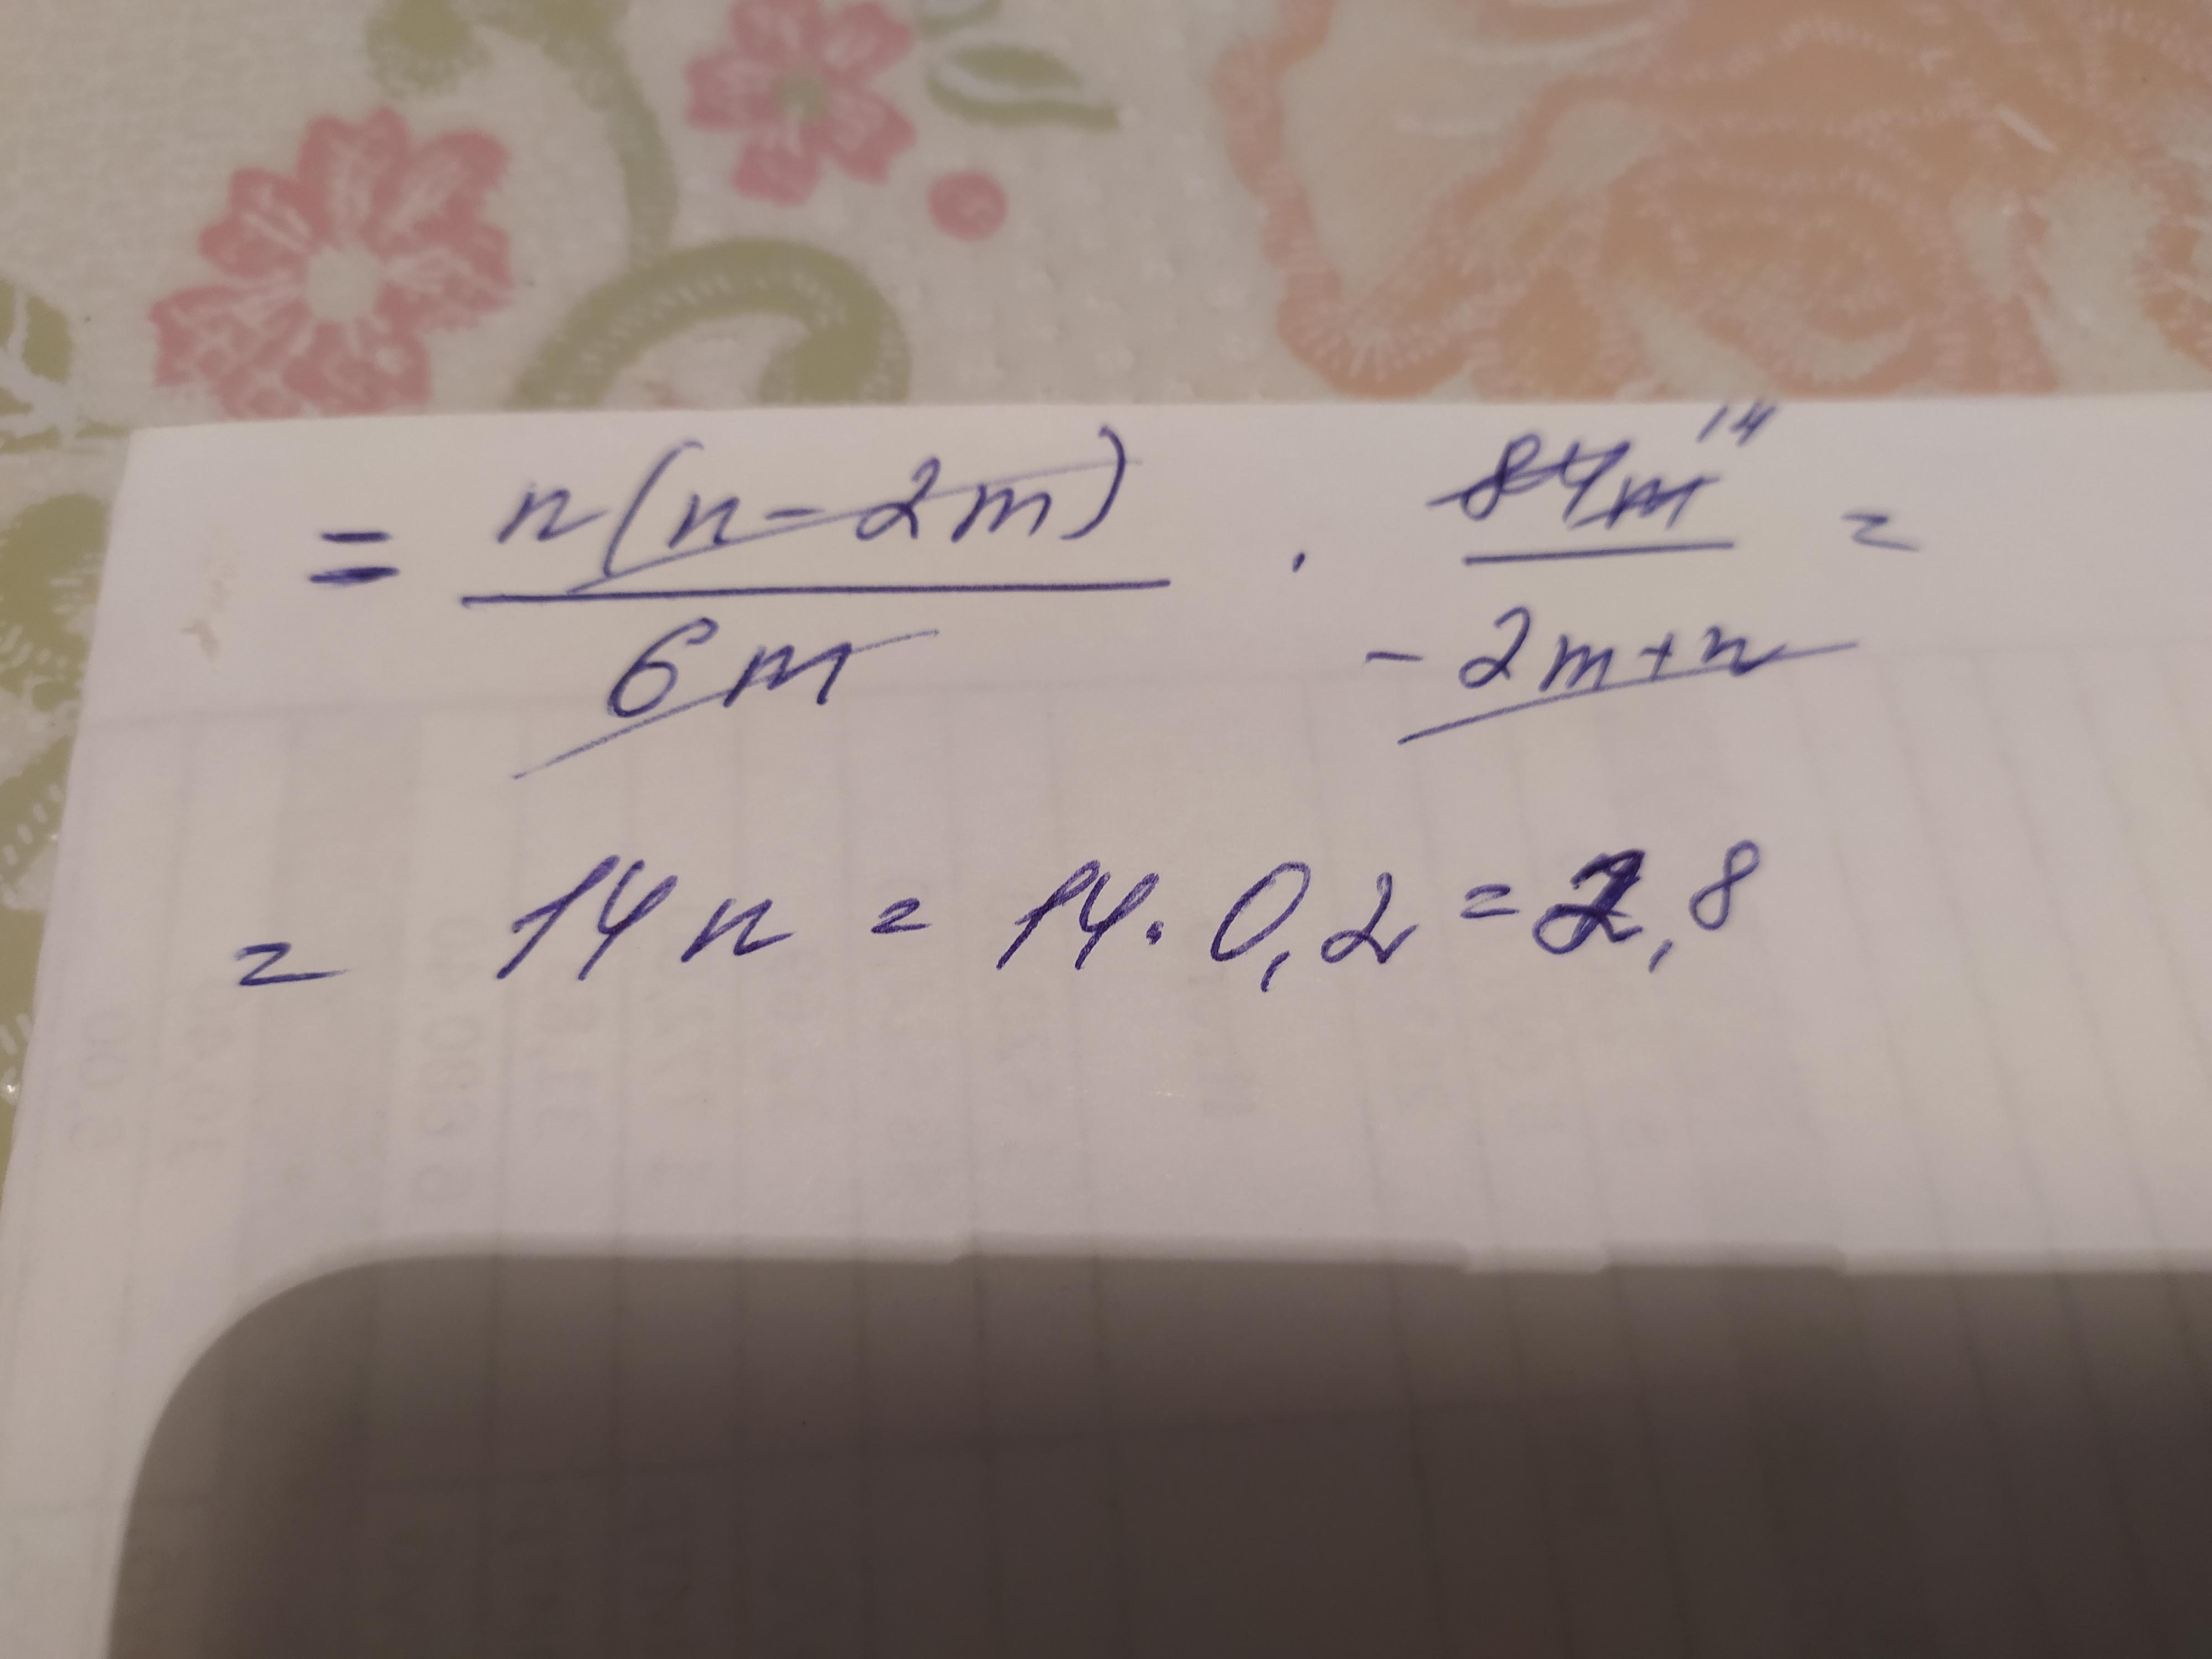 = n(n-2m)/6m · 84m 14/-2m+n =
= 14n = 14·0,2 = 2,8